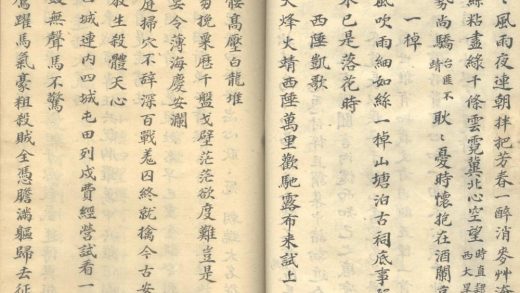 風雨夜連朝拌把芳春一醉消麥艸
絲粘盡綠千條雲霓冀北心空望 時直 西大旱
勢尚驕 台匪不 靖 耿〻憂時懷抱在酒闌
一棹
風吹雨細如絲一棹山塘泊古祠底事
木已是落花時
西陲凱歌
大烽火靖西陲萬里歡馳露布來試上
腰高壓白龍堆
芻挽粟歷千盤戈壁茫茫欲度難豈是
安令薄海慶安瀾
庭掃穴不辭深百戰羌囚終就擒今古
放生殺體天心
城連內四城屯田列戍費經營試看一
鼓無聲馬不驚
騰躍馬氣豪粗殺賊全憑膽滿軀歸去征